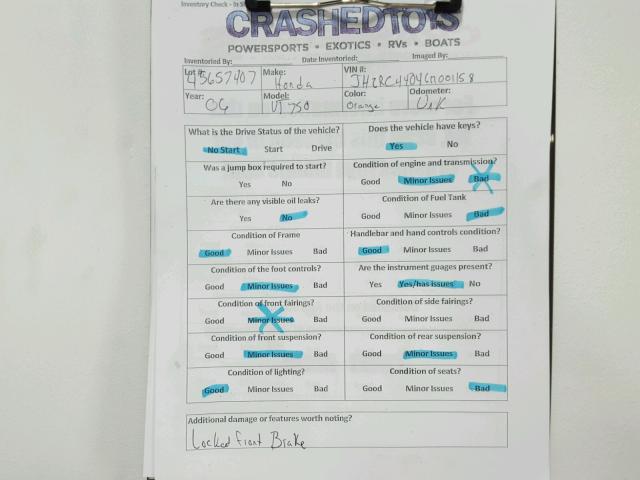 Inventory Check - In S
CRASHEDTOYS
POWERSPORTS • EXOTICS • RVs • BOATS
Inventoried By: Date Inventoried: Imaged By:
Lot #: 45657407 Make: Honda VIN #:
Year: 06 Model: VT 750 Color: Orange Odometer: Unk
What is the Drive Status of the vehicle? Does the vehicle have keys?
No Start Start Drive Yes No
Was a jump box required to start? Condition of engine and transmission?
Yes No Good Minor Issues Bad
Are there any visible oil leaks? Condition of Fuel Tank
Yes No Good Minor Issues Bad
Condition of Frame Handlebar and hand controls condition?
Good Minor Issues Bad Good Minor Issues Bad
Condition of the foot controls? Are the instrument guages present?
Good Minor Issues Bad Yes Yes/has issues No
Condition of front fairings? Condition of side fairings?
Good Minor Issues Bad Good Minor Issues Bad
Condition of front suspension? Condition of rear suspension?
Good Minor Issues Bad Good Minor Issues Bad
Condition of lighting? Condition of seats?
Good Minor Issues Bad Good Minor Issues Bad
Additional damage or features worth noting?
Locked front Brake